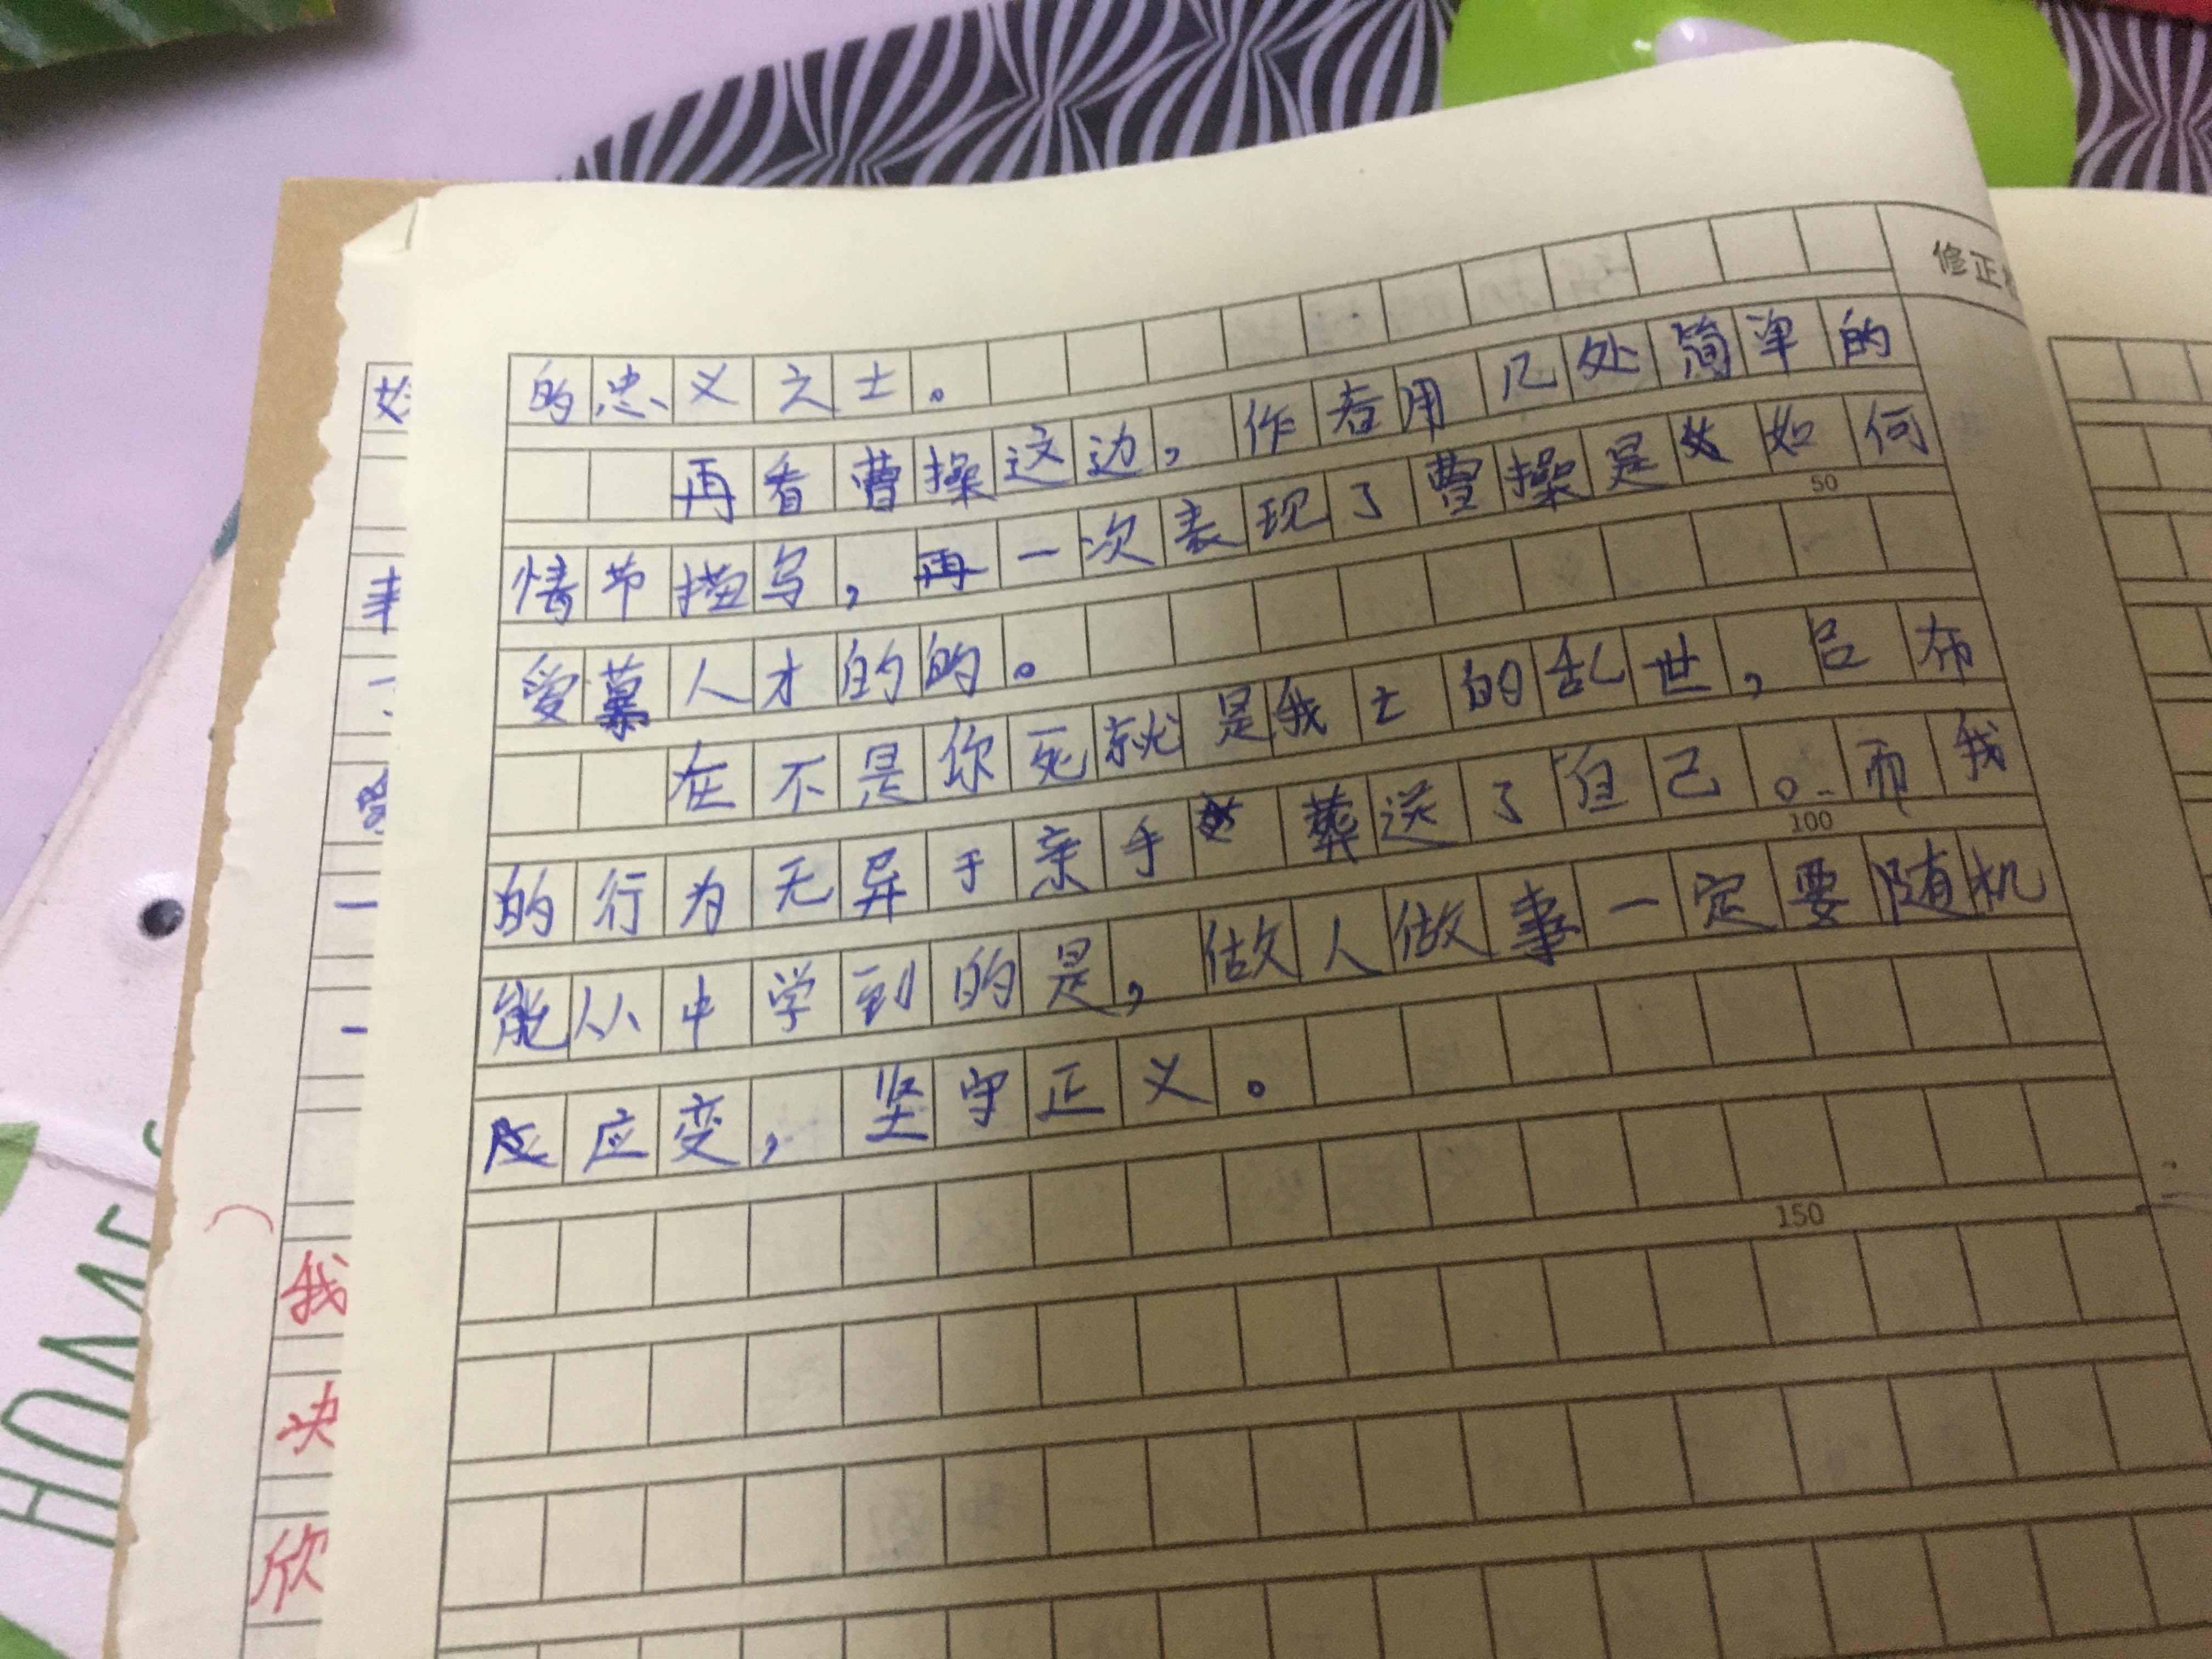 修正
的忠义之士。
再看曹操这边，作者用几处简单的
情节描写，再一次表现了曹操是如何
50
爱慕人才的的。
在不是你死就是我亡的乱世，吕布
的行为无异于亲手葬送了自己。而我
100
能从中学到的是，做人做事一定要随机
应变，坚守正义。
150
我
决
欣
HOME